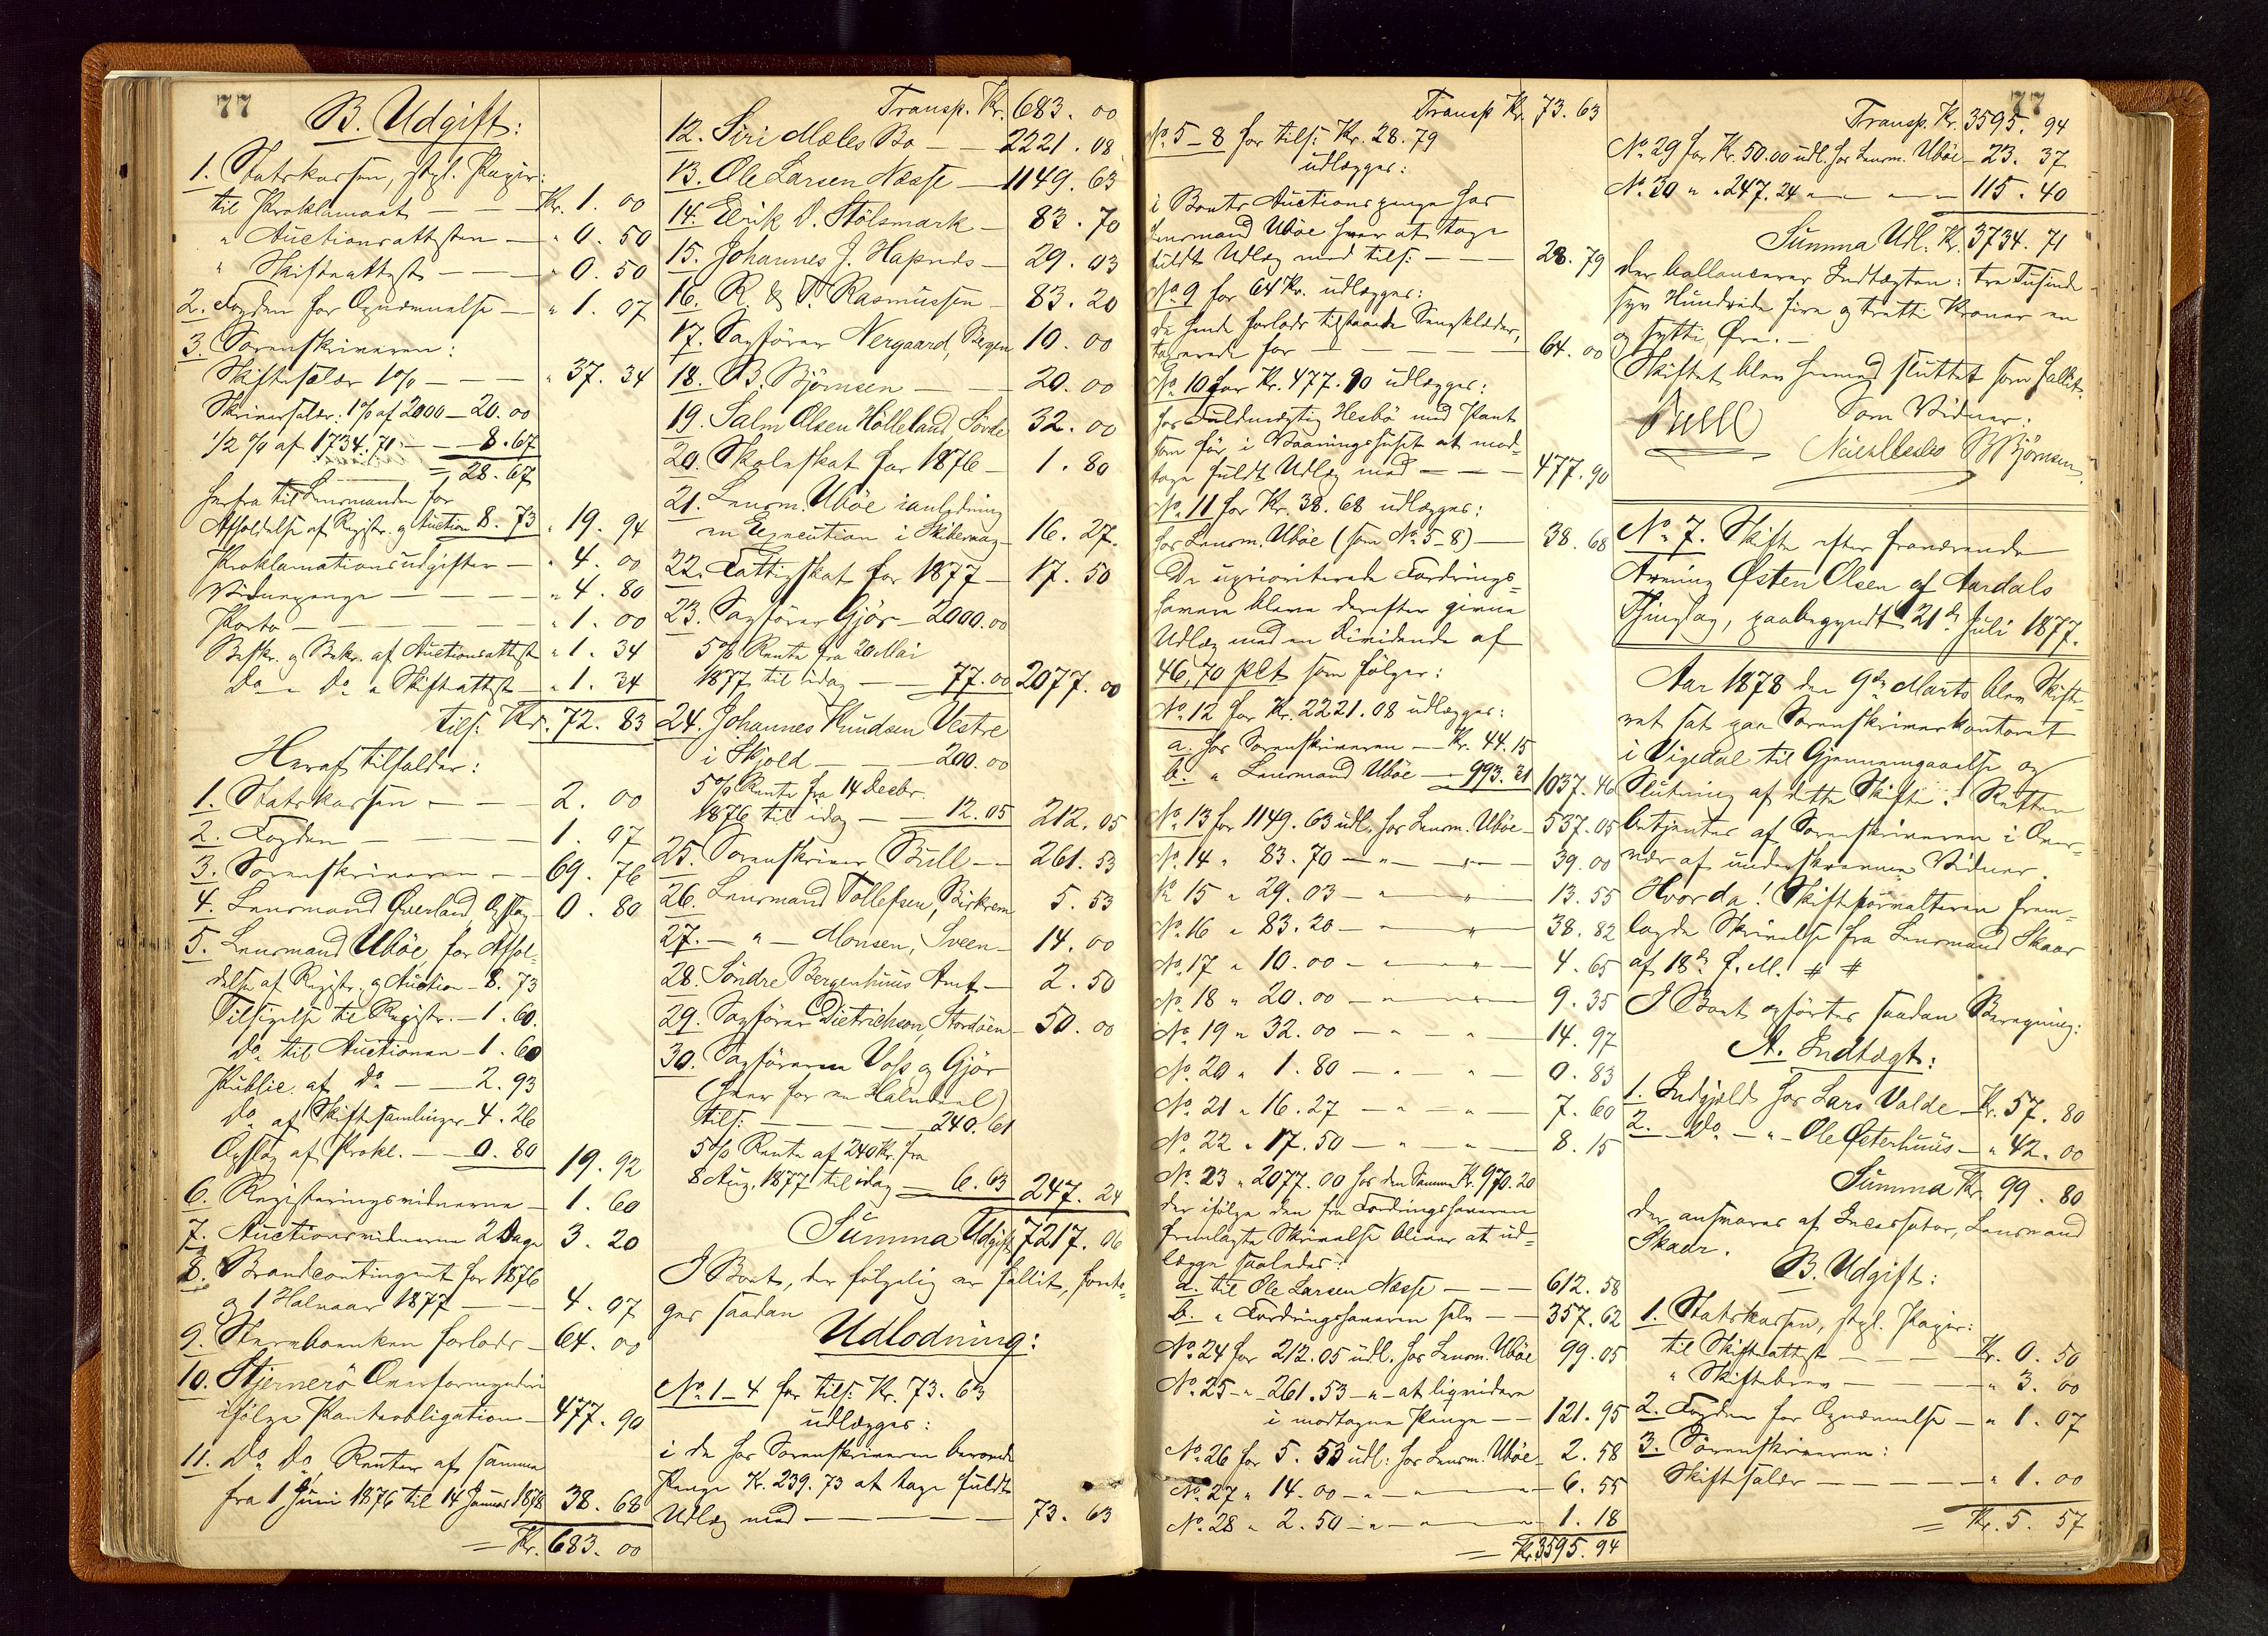 77
B. Udgift:
1. Statskassen, stpl. Papir:
til Proklamaet — — Kr. 1. 00
" Auctionsattesten — " 0. 50
" Skifteattest — — — " 0. 50
2. Fogden for Opnævnelse — " 1. 07
3. Sorenskriveren:
Skiftesalær 1% — — — " 37. 34
Skriversalær: 1% af 2000 — 20. 00
1/2 % af 1734. 71 — — 8. 67
= 28. 67
herfra til Lensmanden for
Afholdelse af Registr. og Auction 8. 73 " 19. 94
Proklamationsudgifter — " 4. 00
Vidnepenge — — — — " 4. 80
Porto — — — — — — " 1. 00
Beskr. og Bekr. af Auctionsattest " 1. 34
Do " Do " Skifteattest — " 1. 34
tils: Kr. 72. 83
Heraf tilfalder:
1. Statskassen — — — 2. 00
2. Fogden — — — — 1. 07
3. Sorenskriveren — — 69. 76
4. Lensmand Qverland, Opslag 0. 80
5. Lensmand Ubøe, for Afhol-
delse af Registr. og Auction — 8. 73
Tilsigelse til Registr. — 1. 60
Do til Auctionen — 1. 60
Public. af Do — — 2. 93
Do af Skiftesamlinger 4. 26
Opslag af Prokl. — — 0. 80 19. 92
6. Registreringsvidnerne — 1. 60
7. Auctionsvidnerne 2 Dage 3. 20
8. Brandcontingent for 1876
og 1 Halvaar 1877 — — 4. 07
9. forlods — 64. 00
10. Stjernerø Overformynderi
ifølge Panteobligation — 477. 90
11. Do Do, Renter af samme
fra 1 Juni 1876 til 14 Januar 1878 38. 68
= Kr. 683. 00
Transp. Kr. 683. 00
12. Siri Mæles Bo — — 2221. 08
13. Ole Larsen Næsse — 1149. 63
14. Eerik O. Stølsmark — 83. 70
15. Johannes J. Hapnes — 29. 03
16. R. & T. Rasmussen — 83. 20
17. Sagfører Nergaard, Bergen 10. 00
18. B. Bjørnsen — — 20. 00
19. Salm Olsen Hølleland Søvde 32. 00
20. Skoleskat for 1876 — 1. 80
21. Lensm. Ubøe i anledning
en Execution i Skibevaag — 16. 27.
22. Fattigskat for 1877 — 17. 50
23. Sagfører Gjør — 2000. 00
5% Rente fra 20 Mai
1877 til idag — — 77. 00 2077. 00
24. Johannes Knudsen Vestre
i Skjold — — — 200. 00
5% Rente fra 14 Decbr.
1876 til idag — — 12. 05 212. 05
25. Sorenskriver Bull — — 261. 53
26. Lensmand Tollefsen, Birkrem 5. 53
27. — " — Monsen, Sveen — 14. 00
28. Søndre Bergenhuus Amt — 2. 50
29. Sagfører Dietrichson, Stordøen — 50. 00
30. Sagførerne Voss og Gjør
(hver for en Halvdeel)
tils: — — — — — 240. 61
5% Rente af 240 Kr. fra
8 Aug. 1877 til idag — 6. 63 247. 24
Summa Udgift 7217. 06
I Boet, der følgelig er fallit, foreta-
ges saadan
Udlodning:
No. 1–4 for tils: Kr. 73. 63
udlægges:
i de hos Sorenskriveren beroende
Penge Kr. 239. 73 at tage fuldt
Udlæg med — — — — — 73. 63
Transp Kr. 73. 63
No. 5–8 for tils: Kr. 28. 79
udlægges:
i Boets Auctionspenge hos
Lensmand Ubøe hver at tage
fuldt Udlæg med tils: — — — 28. 79
No. 9 for 64 Kr. udlægges:
de hende forlods tilstaaede Sengklæder,
taxerede for — — — — — 64. 00
No. 10 for Kr. 477. 90 udlægges:
hos Fuldmægtig Hesbø med Pant
som før i Vaaningshuset at mod-
tage fuldt Udlæg med — — — 477. 90
No. 11 for Kr. 38. 68 udlægges:
hos Lensm. Ubøe (som No. 5–8) — 38. 68
De uprioriterede Fordrings-
havere bleve derefter givne
Udlæg med en Dividende af
46,70 pCt som følger:
No. 12 for Kr. 2221. 08 udlægges:
a. hos Sorenskriveren — Kr. 44. 15
b. " Lensmand Ubøe — 993. 31 1037. 46
No. 13 for 1149. 63 udl. hos Lensm. Ubøe — 537. 05
No. 14 " 83. 70 — " — " — 39. 00
No 15 " 29. 03 — " — " — 13. 55
No. 16 " 83. 20 — " — " — 38. 82
No. 17 " 10. 00 — " — " — 4. 65
No. 18 " 20. 00 — " — " — 9. 35
No. 19 " 32. 00 — " — " — 14. 97
No. 20 " 1. 80 — " — " — 0. 83
No. 21 " 16. 27 — " — " — 7. 60
No. 22 " 17. 50 — " — " — 8. 15
No. 23 " 2077. 00 hos den Samme Kr. 970. 20
der ifølge den fra Fordringshaveren
fremlagte Skrivelse bliver at ud-
lægge saaledes:
a. til Ole Larsen Næsse — — — 612. 58
b. " Fordringshaveren selv — — 357. 62
No. 24 for 212. 05 udl. hos Lensm. Ubøe 99. 05
No. 25 — " 261. 53 — " — at liqvidere
i modtagne Penge — — 121. 95
No. 26 for 5. 53 udl: hos Lensm. Ubøe — 2. 58
No. 27 " 14. 00 — " — " — 6. 55
No. 28 " 2. 50 — " — " — 1. 18
= Kr. 3595. 94
77
Transp. Kr. 3595. 94
No. 29 for Kr. 50. 00 udl. hos Lensm. Ubøe — 23. 37
No. 30 " " 247. 24 — " — " — 115. 40
Summa Udl. Kr. 3734. 71
der ballancerer Indtægten: tre Tusinde
syv Hundrede fire og tretti Kroner en
og sytti Øre. —
Skiftet blev hermed sluttet som fallit.
Bull Som Vidner:
B Bjørnsen
No. 7. Skifte efter fraværende
Arving Østen Olsen af Aardals
Thinglag, paabegyndt 21de Juli 1877.
Aar 1878 den 9de Marts blev Skifte-
ret sat paa Sorenskriverkontoret
i Vigedal til Gjennemgaaelse og
Slutning af dette Skifte. Retten
betjentes af Sorenskriveren i Over-
vær af underskrevne Vidner.
Hvorda! Skifteforvalteren frem-
lagde Skrivelse fra Lensmand Skaar
af 18de f. M. # #
I Boet opførtes saadan Beregning:
A. Indtægt:
1. Indgjæld hos Lars Valde — Kr. 57. 80
2. — Do — " — Ole Østerhuus — " 42. 00
Summa Kr. 99. 80
der ansvares af Incassator, Lensmand
Skaar.
B. Udgift:
1. Statskassen, stpl. Papir:
til Skifteattest — — — Kr. 0. 50
" Skiftebrev — — — " 3. 00
2. Fogden for Opnævnelse — " 1. 07
3. Sorenskriveren:
Skiftesalær — — — — " 1. 00
= Kr. 5. 57